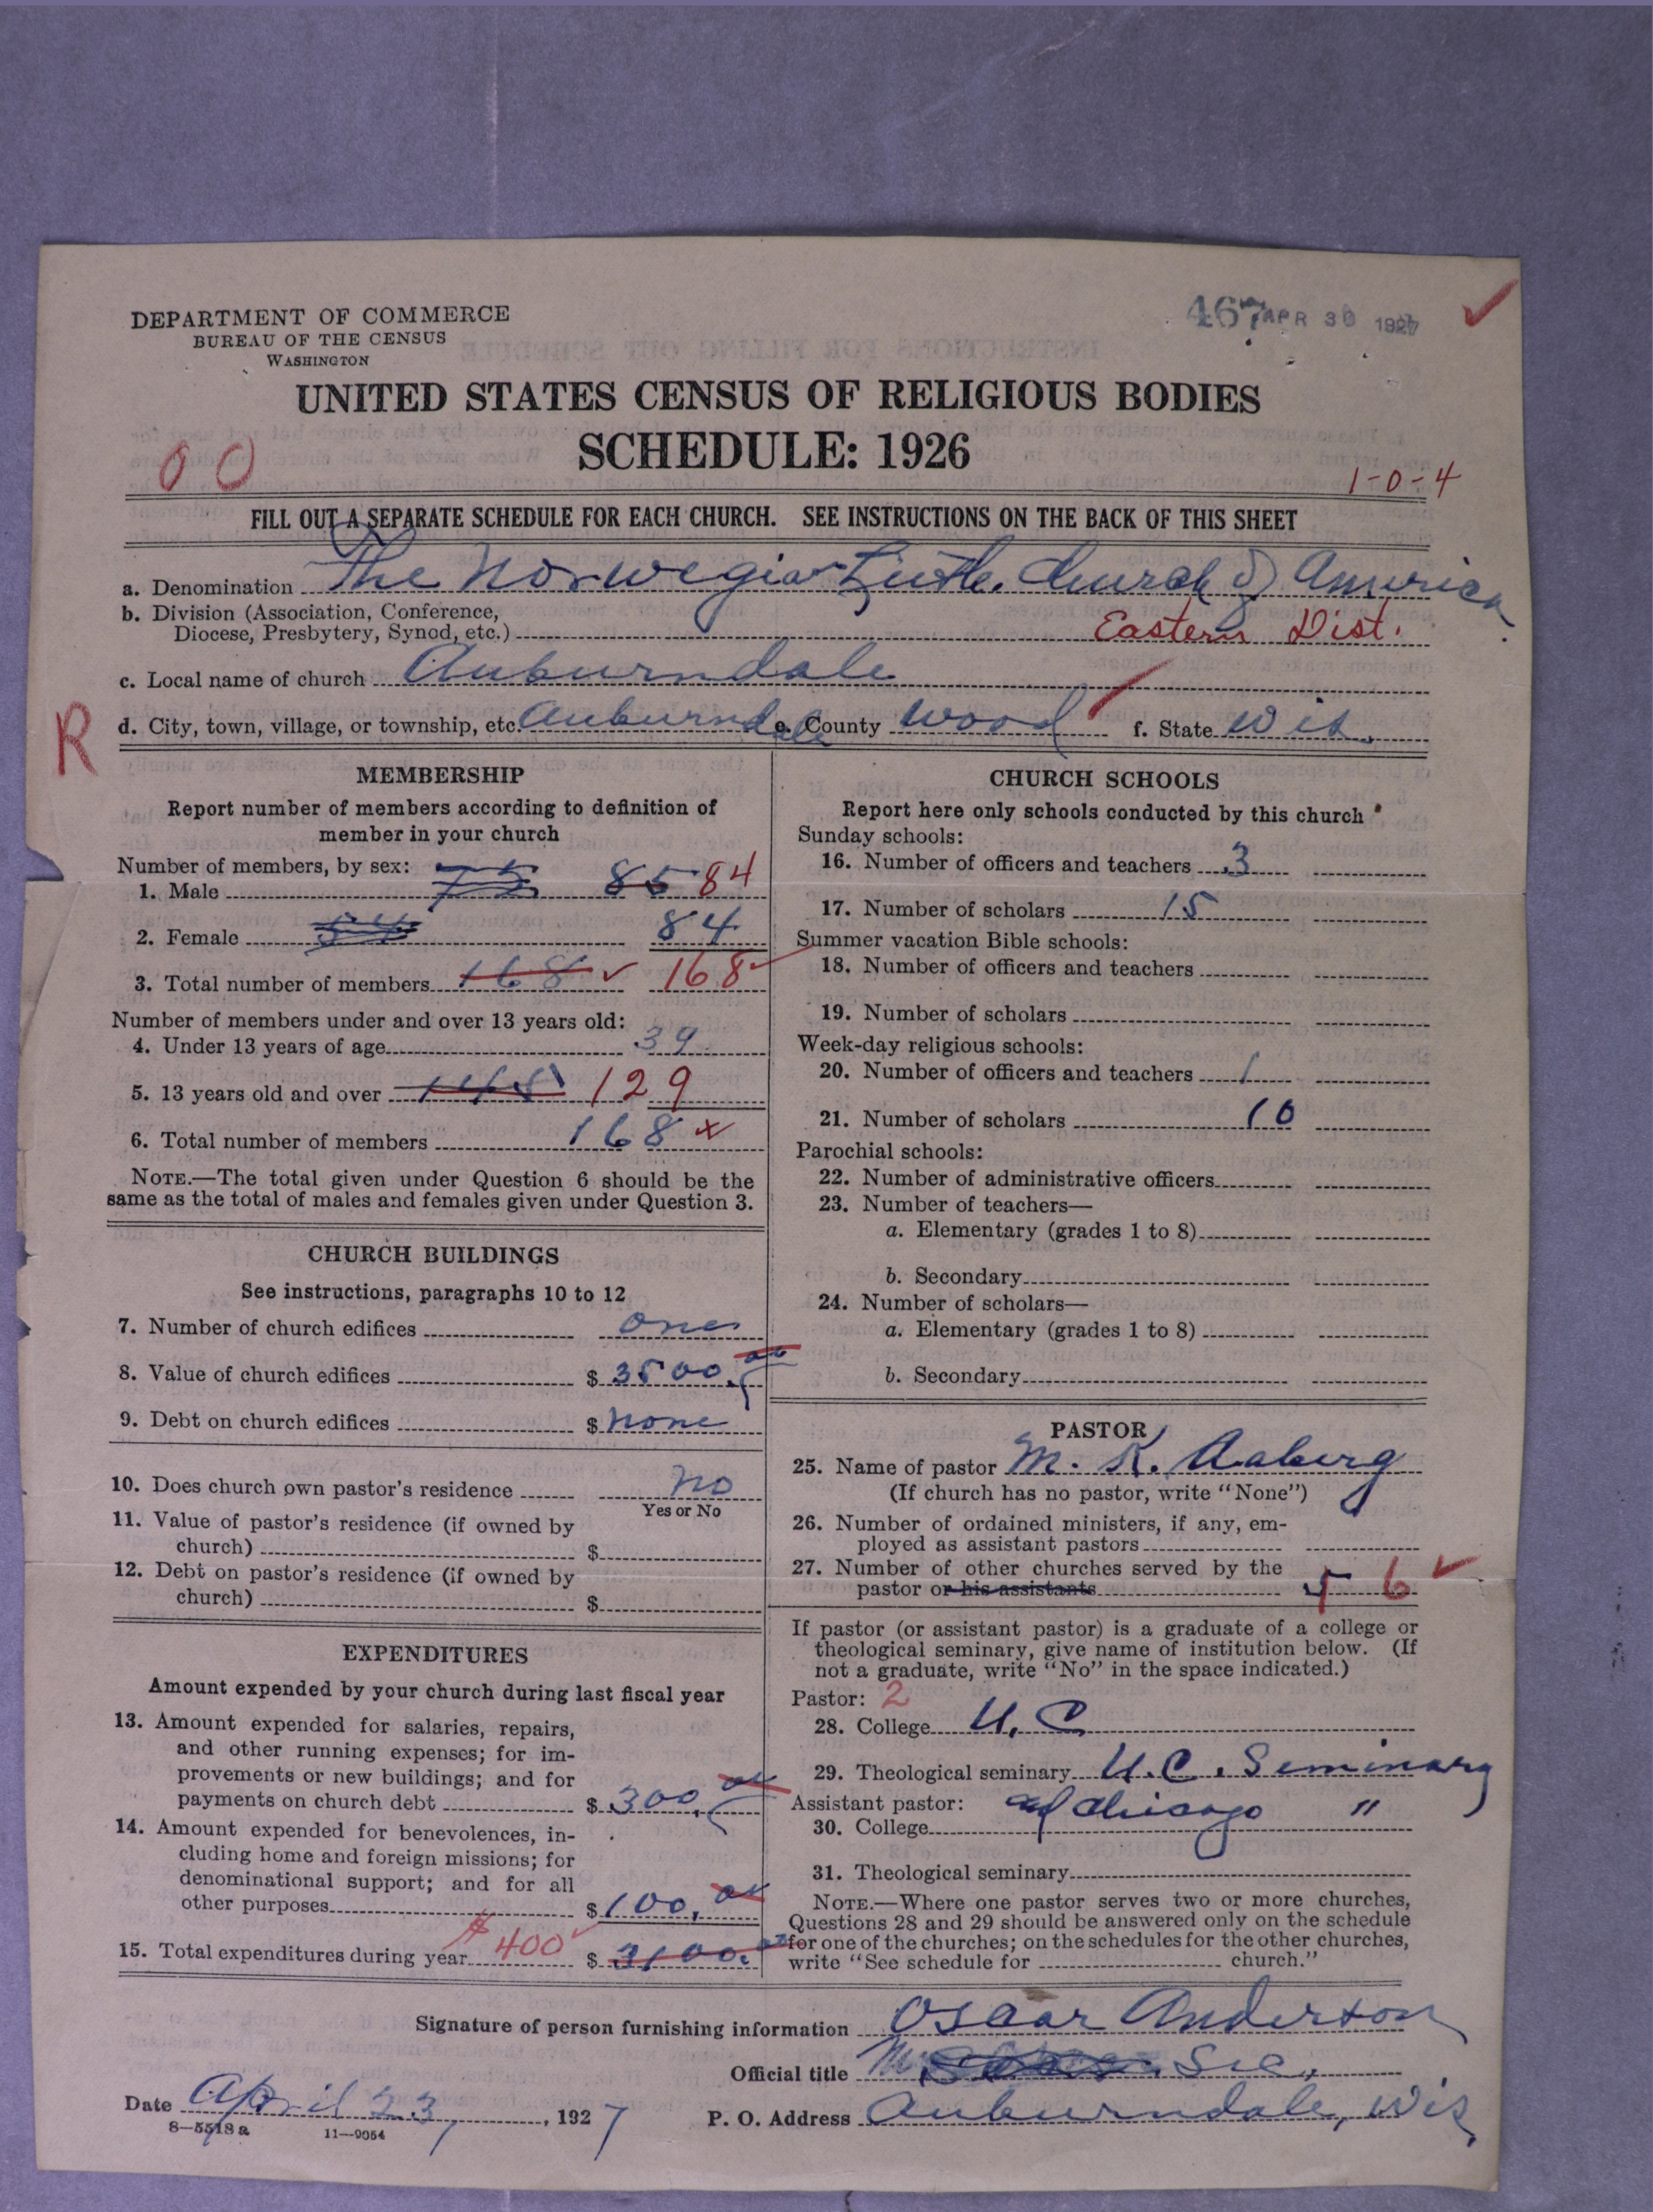 DEPARTMENT OF COMMERCE
BUREAU OF THE CENSUS
WASHINGTON
467 APR 30 1927
UNITED STATES CENSUS OF RELIGIOUS BODIES
SCHEDULE: 1926
00
1-0-4
FILL OUT A SEPARATE SCHEDULE FOR EACH CHURCH. SEE INSTRUCTIONS ON THE BACK OF THIS SHEET
a. Denomination The Norwegian Luth. Church of America.
b. Division (Association, Conference,
Diocese, Presbytery, Synod, etc.) Eastern Dist.
c. Local name of church Auburndale
R
d. City, town, village, or township, etc. Auburndale e. County Wood f. State Wis.
MEMBERSHIP
Report number of members according to definition of
member in your church
Number of members, by sex:
1. Male 75 85 84
2. Female 84
3. Total number of members 168 168
Number of members under and over 13 years old:
4. Under 13 years of age 39
5. 13 years old and over 129
6. Total number of members 168
NOTE.—The total given under Question 6 should be the
same as the total of males and females given under Question 3.
CHURCH BUILDINGS
See instructions, paragraphs 10 to 12
7. Number of church edifices one
8. Value of church edifices $ 3500.00
9. Debt on church edifices $ none
10. Does church own pastor's residence no
Yes or No
11. Value of pastor's residence (if owned by
church) $
12. Debt on pastor's residence (if owned by
church) $
EXPENDITURES
Amount expended by your church during last fiscal year
13. Amount expended for salaries, repairs,
and other running expenses; for im-
provements or new buildings; and for
payments on church debt $ 300.00
14. Amount expended for benevolences, in-
cluding home and foreign missions; for
denominational support; and for all
other purposes $ 100.00
15. Total expenditures during year $400 $ 3100.00
CHURCH SCHOOLS
Report here only schools conducted by this church
Sunday schools:
16. Number of officers and teachers 3
17. Number of scholars 15
Summer vacation Bible schools:
18. Number of officers and teachers
19. Number of scholars
Week-day religious schools:
20. Number of officers and teachers 1
21. Number of scholars 10
Parochial schools:
22. Number of administrative officers
23. Number of teachers—
a. Elementary (grades 1 to 8)
b. Secondary
24. Number of scholars—
a. Elementary (grades 1 to 8)
b. Secondary
PASTOR
25. Name of pastor M. K. Aaberg
(If church has no pastor, write "None")
26. Number of ordained ministers, if any, em-
ployed as assistant pastors
27. Number of other churches served by the
pastor or his assistants 5 6
If pastor (or assistant pastor) is a graduate of a college or
theological seminary, give name of institution below. (If
not a graduate, write "No" in the space indicated.)
Pastor: 2
28. College U. C
29. Theological seminary U.C. Seminary
Assistant pastor: of Chicago "
30. College
31. Theological seminary
NOTE.—Where one pastor serves two or more churches,
Questions 28 and 29 should be answered only on the schedule
for one of the churches; on the schedules for the other churches,
write "See schedule for church."
Signature of person furnishing information Oscar Anderson
Official title Sec.,
Date April 23, 1927 P. O. Address Auburndale, Wis
8—5518 a 11—9054